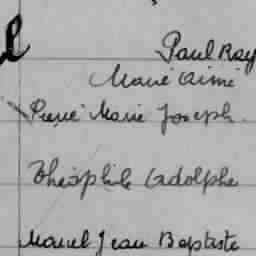 l Paul Ray
Marie Aimé
Pierre Marie Joseph.
Théophile Adolphe
Marcel Jean Baptiste